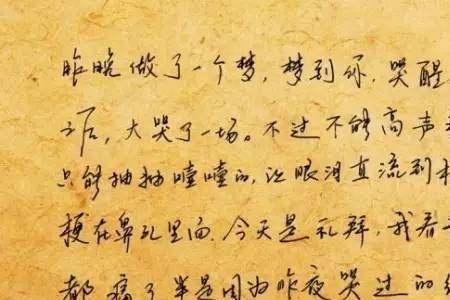 昨晚做了一个梦，梦到你，哭醒
之后，大哭了一场。不过不能高声
只能抽抽噎噎的，让眼泪直流到
梗在鼻孔里面。今天是礼拜，我看
都痛了半是因为昨夜哭过的